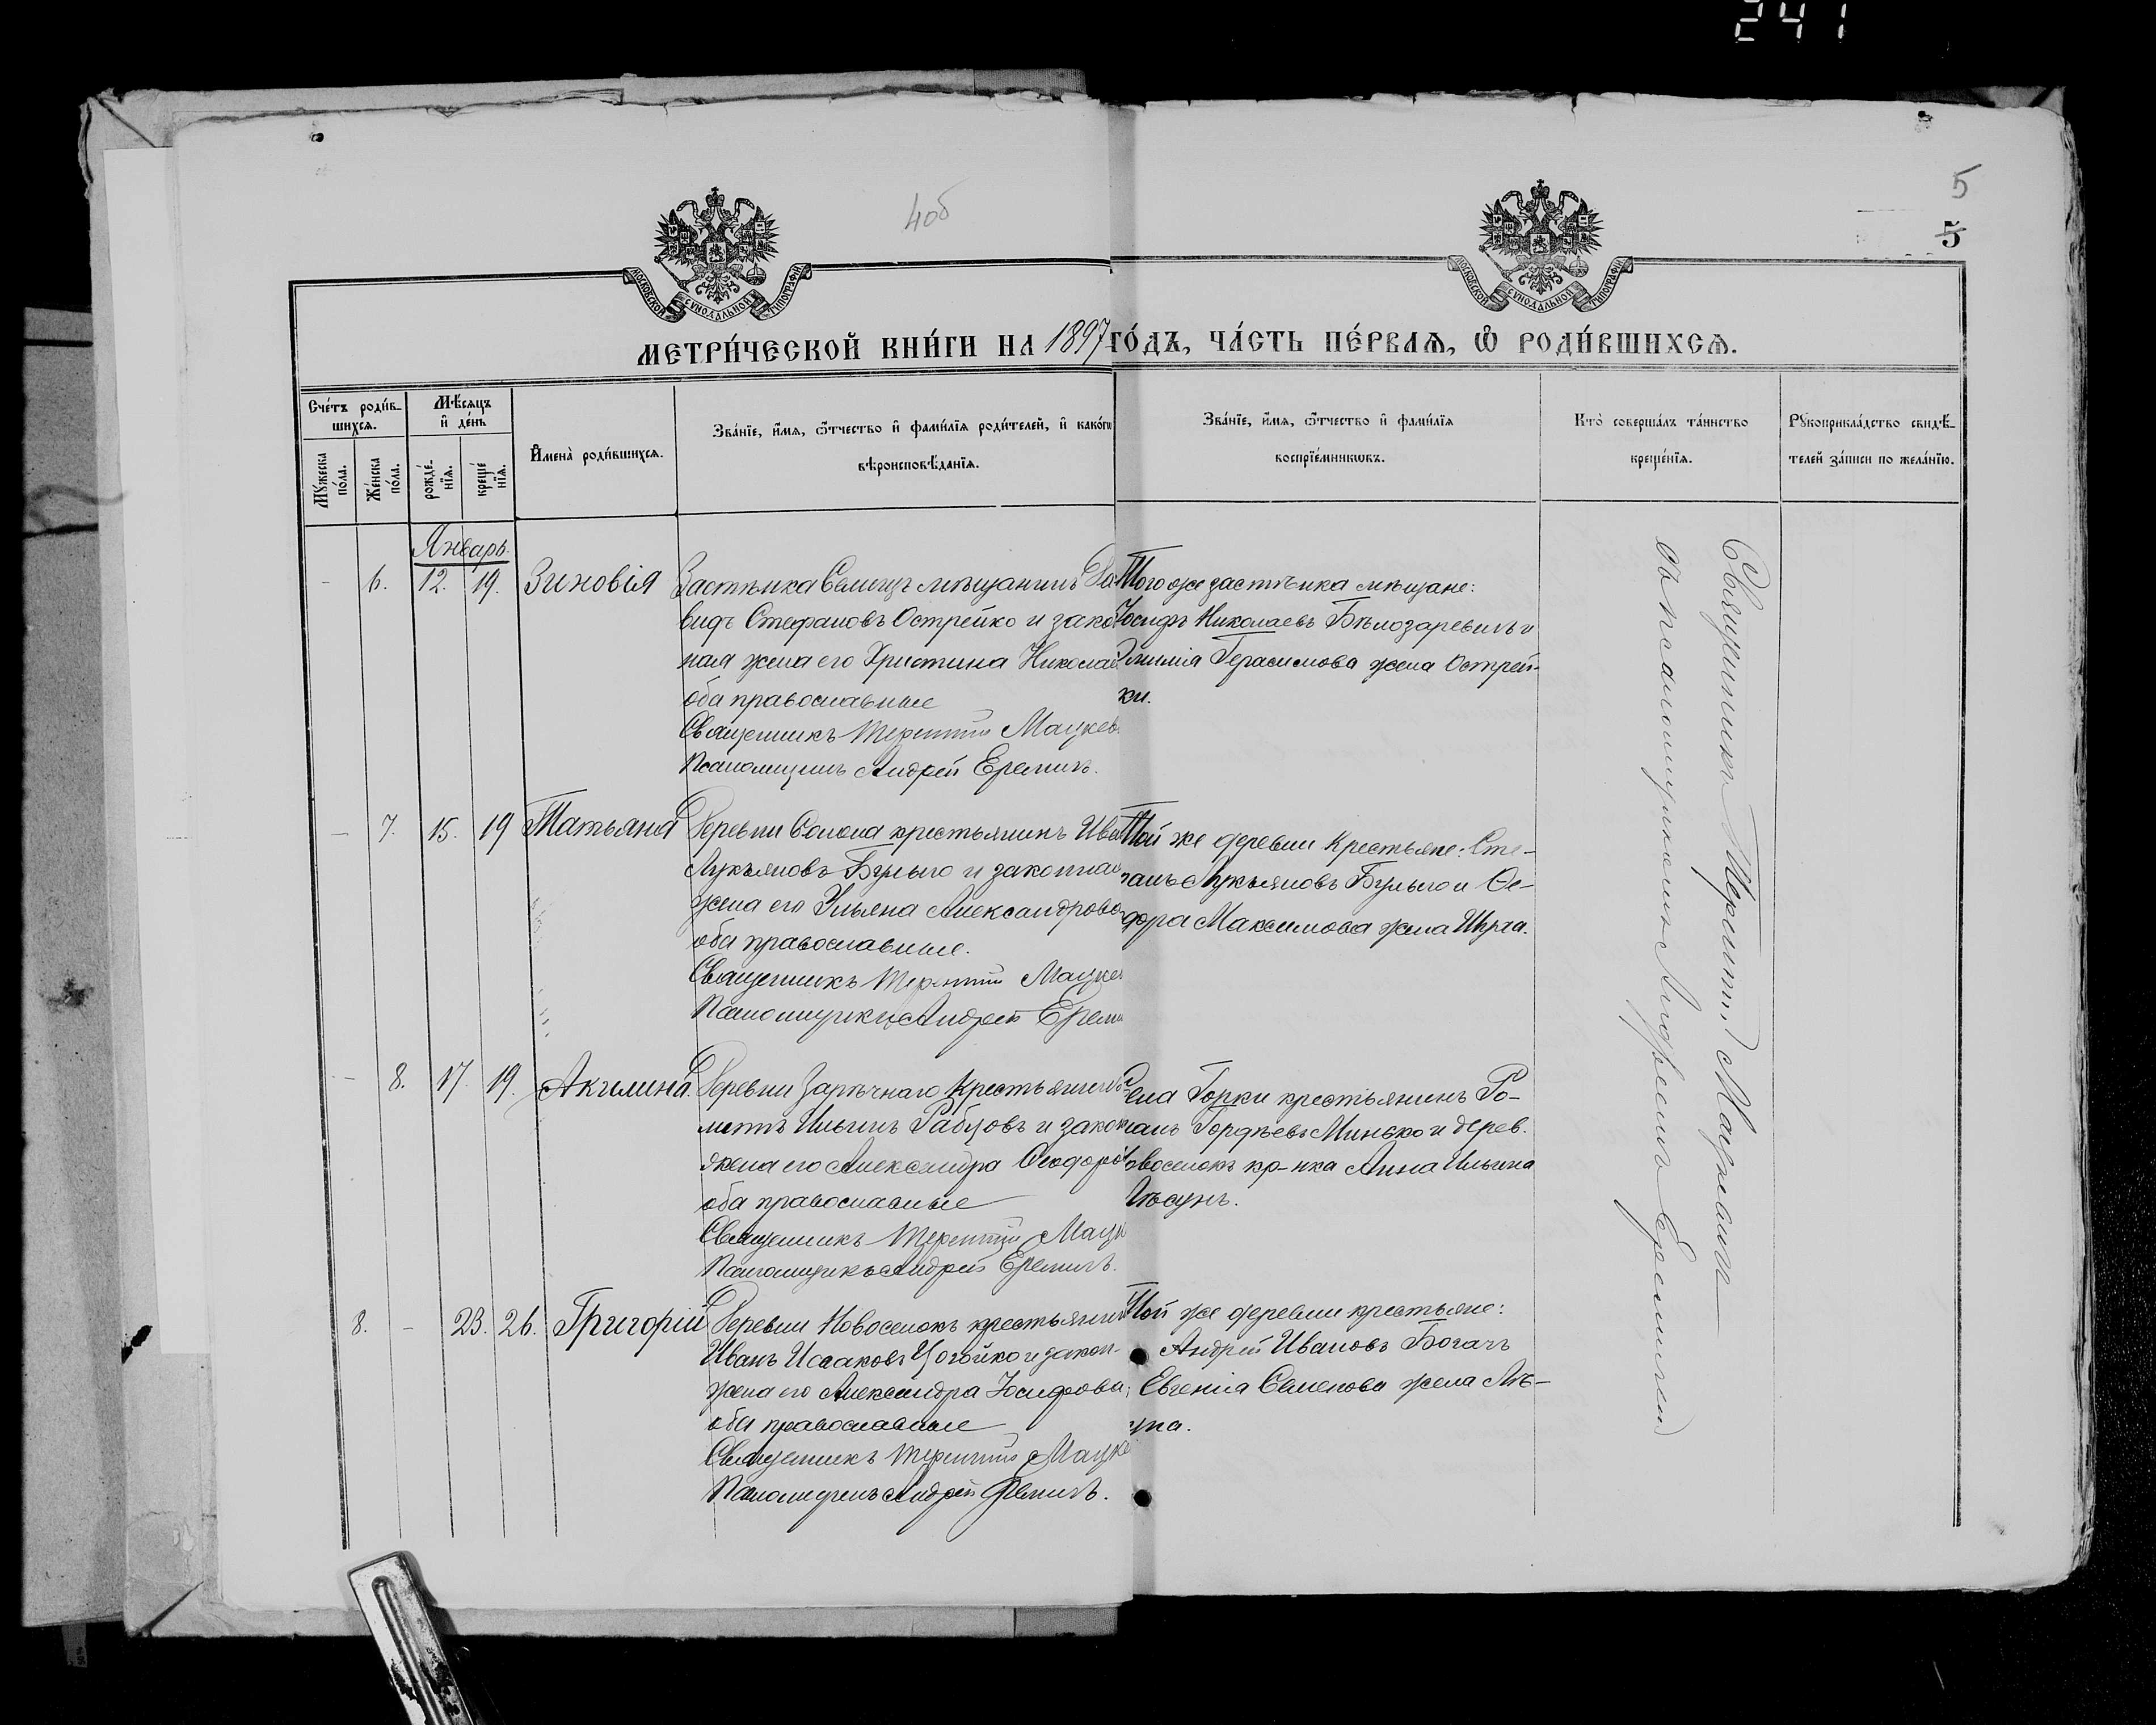 241
40б
5
5
МОСКОВСКОЙ СѴНОДАЛЬНОЙ ТИПОГРАФІИ
МОСКОВСКОЙ СѴНОДАЛЬНОЙ ТИПОГРАФІИ
МЕТРИ́ЧЕСКОЙ КНИ́ГИ НА 1897 ГО́ДЪ, ЧА́СТЬ ПЕ́РВАѦ, Ѡ҆ РОДИ́ВШИХСѦ.
Сче́тъ роди́в-
шихсѧ.
Мꙋ́жеска по́ла.
Же́нска по́ла.
Мѣ́сѧцъ и҆ де́нь
рожде́-
нїѧ.
креще́
нїѧ.
И҆мена̀ роди́вшихсѧ.
Зва́нїе, и҆́мѧ, ѻ҆́тчество и҆ фами́лїѧ роди́телей, и҆ како́гѡ
вѣроисповѣ́данїѧ.
Зва́нїе, и҆́мѧ, ѻ҆́тчество и҆ фами́лїѧ
воспрїе́мникѡвъ.
Кто̀ соверша́лъ та́инство
креще́нїѧ.
Рꙋкоприкла́дство свидѣ́-
телей за́писи по жела́нїю.
Январь.
- 6. 12. 19. Зиновія
Застѣнка мѣщанинъ Да-
видъ Стефановъ Острейко и зако
ная жена его Христина Никола
оба православные
Священникъ Терентій Мацкев
Псаломщикъ Андрей Еремичъ.
Того же застѣнка мѣщане:
Іосифъ Николаевъ Бѣлозаревичъ и
Герасимова жена Острей-
ки.
- 7. 15. 19 Татьяна
Деревни Солома крестьянинъ Ива
Лукьяновъ Булыго и законная
жена его Ульяна Александрова
оба православные.
Священникъ Терентій Мацке
Псаломщикъ Андрей Ереми
Той же деревни крестьяне: Сте-
фанъ Лукьяновъ Булыго и Ѳе-
дора Максимова жена
- 8. 17. 19. Акилина.
Деревни Зарѣчнаго крестьянинъ
Ильинъ Рабцовъ и закон
жена его Александра Ѳеодоро
оба православные
Священникъ Терентій Мацк
Псаломщикъ Андрей Еремичъ.
Села Горки крестьянинъ Ро-
манъ Гордѣевъ Минько и дерев.
Новоселокъ кр-нка Анна Ильина
8. - 23. 26. Григорій
Деревни Новоселокъ крестьянинъ
Иванъ Исааковъ и закон-
жена его Александра Іосифова;
оба православные
Священникъ Терентій Мацке
Псаломщикъ Андрей Еремичъ.
Той же деревни крестьяне:
Андрей Ивановъ Богачъ
Евгенія Семенова жена
Священникъ Терентій Мацкевич
съ псаломщикомъ Андреемъ Еремичемъ